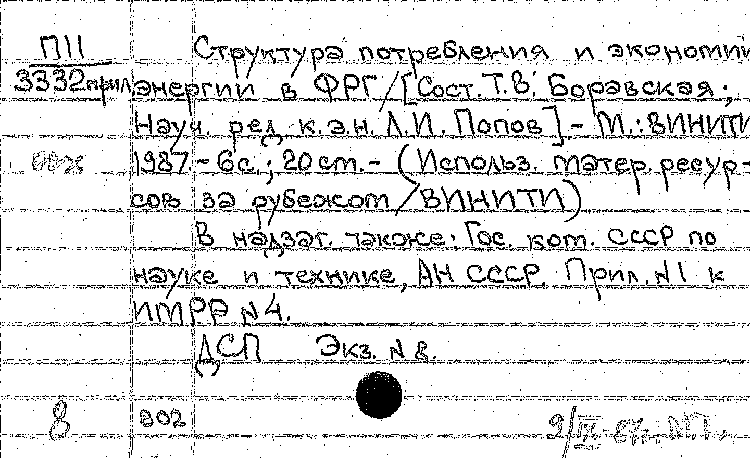 П11
3332прил.
Структура потребления и экономии
энергии в ФРГ/[Сост. Т.В. Боравская;
Науч. ред. к.э.н. Л.И. Попов].- М.: ВИНИТИ
1987.- 6с.; 20 см.- (Использ. матер. ресур-
сов за рубежом /ВИНИТИ)
В надзаг. также: Гос. ком. СССР по
науке и технике, АН СССР. Прил. N1 к
ИМРР N4.
ДСП Экз. N 8.
8 902
9/IX-87г.